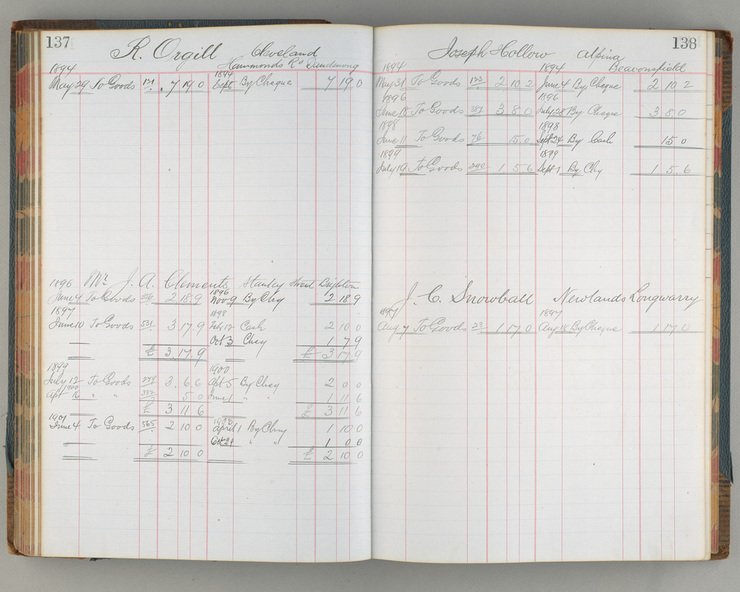 137
R. Orgill Cleveland
Hammonds Rd Dandenong
1894 1894
May 29 To Goods 7 19 0 Sept By Cheque 7 19 0
1896 Mr J. A. Clements Stanley Street Brighton
1896
June 4 To Goods 2 18 9 Nov 9 By Chq 2 18 9
1897 1898
June 10 To Goods 531 3 17 9 Feb 12 Cash 2 10 0
Oct 3 Cheq 1 7 9
£ 3 17 9 £ 3 17 9
1899 1900
July 12 To Goods 3 6 6 Apl 5 By Cheq 2 0 0
Apl 16 " " 5 0 June 1 1 11 6
£ 3 11 6 £ 3 11 6
1901
June 4 To Goods 565 2 10 0 April 1 By Chq 1 10 0
Oct 29 " " 1 0 0
£ 2 10 0 £ 2 10 0
138
Joseph Hollow Alpina
Beaconsfield
1894 1894
May 31 To Goods 2 10 2 June 4 By Cheque 2 10 2
1896 1896
June 18 To Goods 3 8 0 July 28 By Cheque 3 8 0
1898 1898
June 11 To Goods 76 15 0 Sept 24 By Cash 15 0
1899 1899
July 19 To Goods 1 5 6 Sept 7 By Chq 1 5 6
J. C. Snowball Newlands Longwarry
1897 1897
Aug 7 To Goods 23 1 17 0 Aug 18 By Cheque 1 17 0